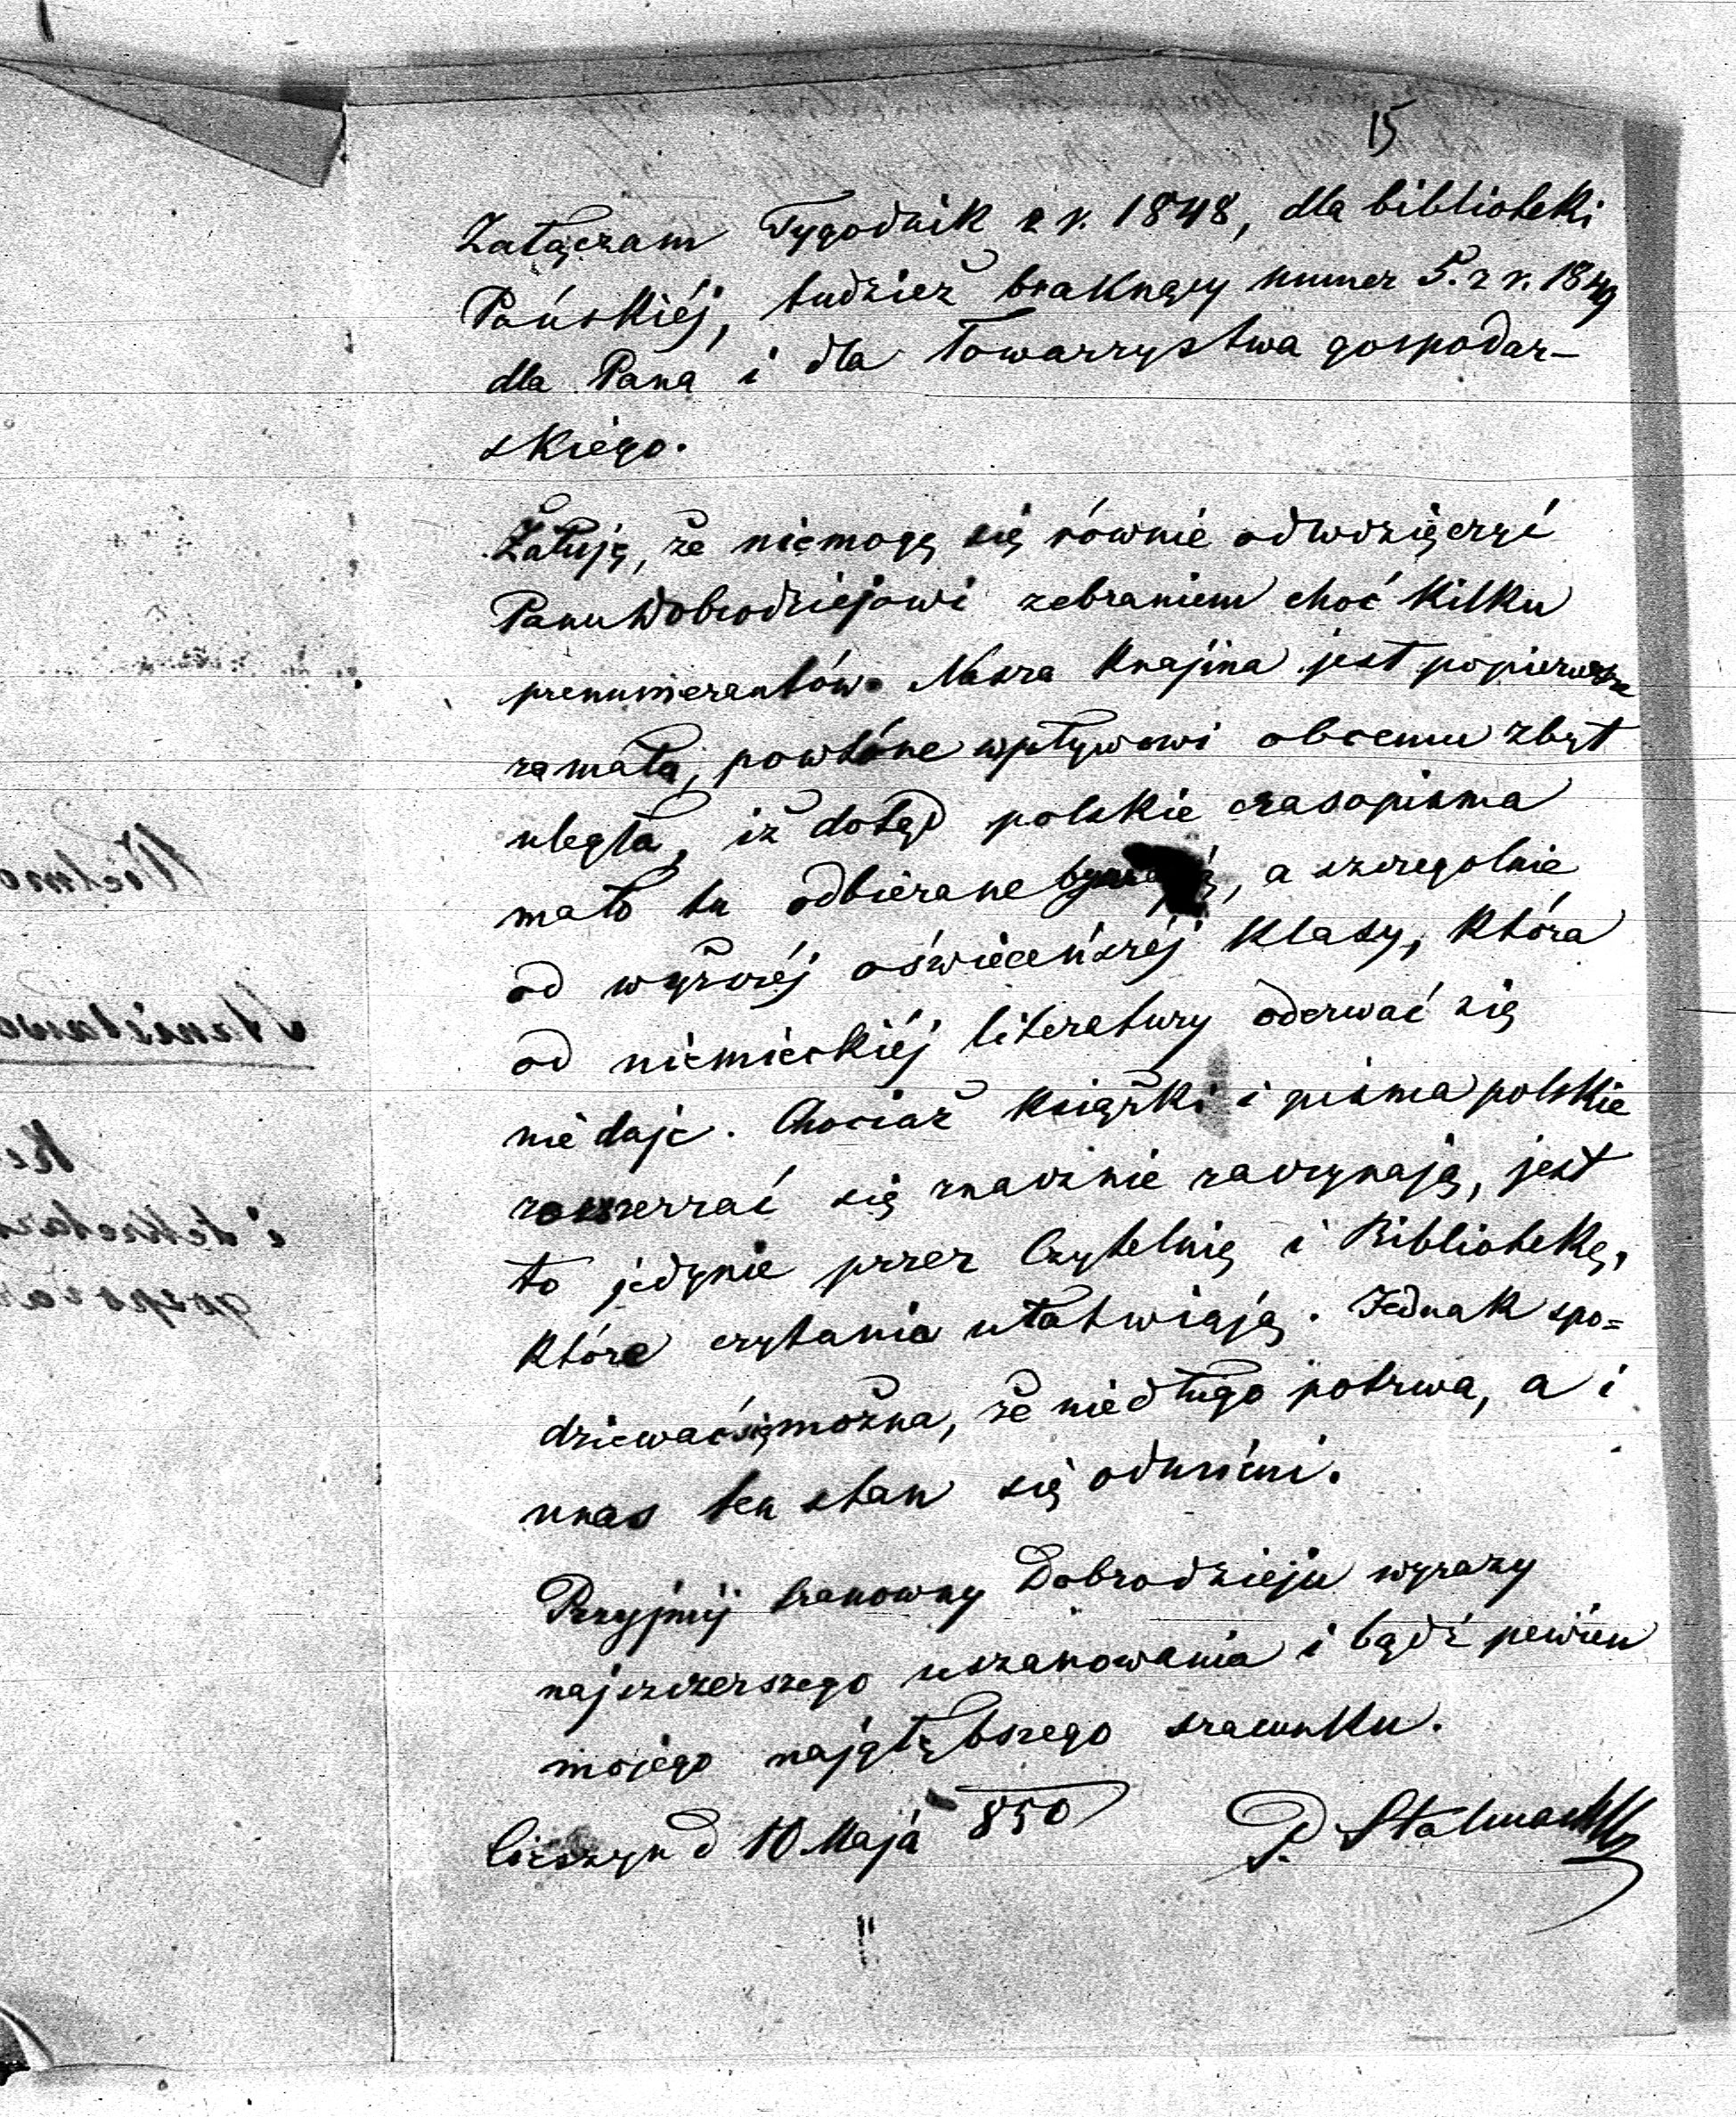 15
Załączam Tygodnik z r. 1848, dla biblioteki
Pańskiéj, tudzież braknący numer 5. z r. 1849
dla Pana i dla Towarzystwa gospodar-
skiego.
Żałuję, że niemogę się równie odwdzięczyć
Panu Dobrodziejowi zebraniem choć kilku
prenumerantów. Nasza Krajina jest popierwsze
zamała, powtóre wpływowi obcemu zbyt
uległa, iż dotąd polskie czasopisma
mało tu odbierane bywają, a szczególnie
od wyższéj oświeceńszéj klasy, która
od niemieckiéj literatury oderwać się
nie daje. Chociaż książki i pisma polskie
rozszerzać się znacznie zaczynają, jest
to jedynie przez Czytelnię i Bibliotekę,
które czytania ułatwiają. Jednak spo=
dziewać się można, że niedługo potrwa, a i
unas ten stan się odmieni.
Przyjmij szanowny Dobrodzieju wyrazy
najszczerszego uszanowania i bądź pewien
mojego najgłębszego szacunku.
Cieszyn d 10. Maja 850 P. Stalmach